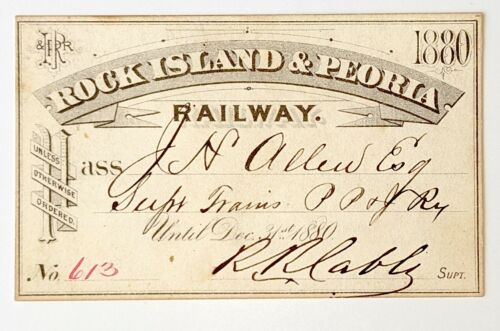 R.I. & P.R. 1880
ROCK ISLAND & PEORIA
RAILWAY.
Pass J N Allen Esq
UNLESS
OTHERWISE
ORDERED.
Supt Trains P P & J Ry
Until Dec. 31st 1880.
No. 613 R R Cable SUPT.